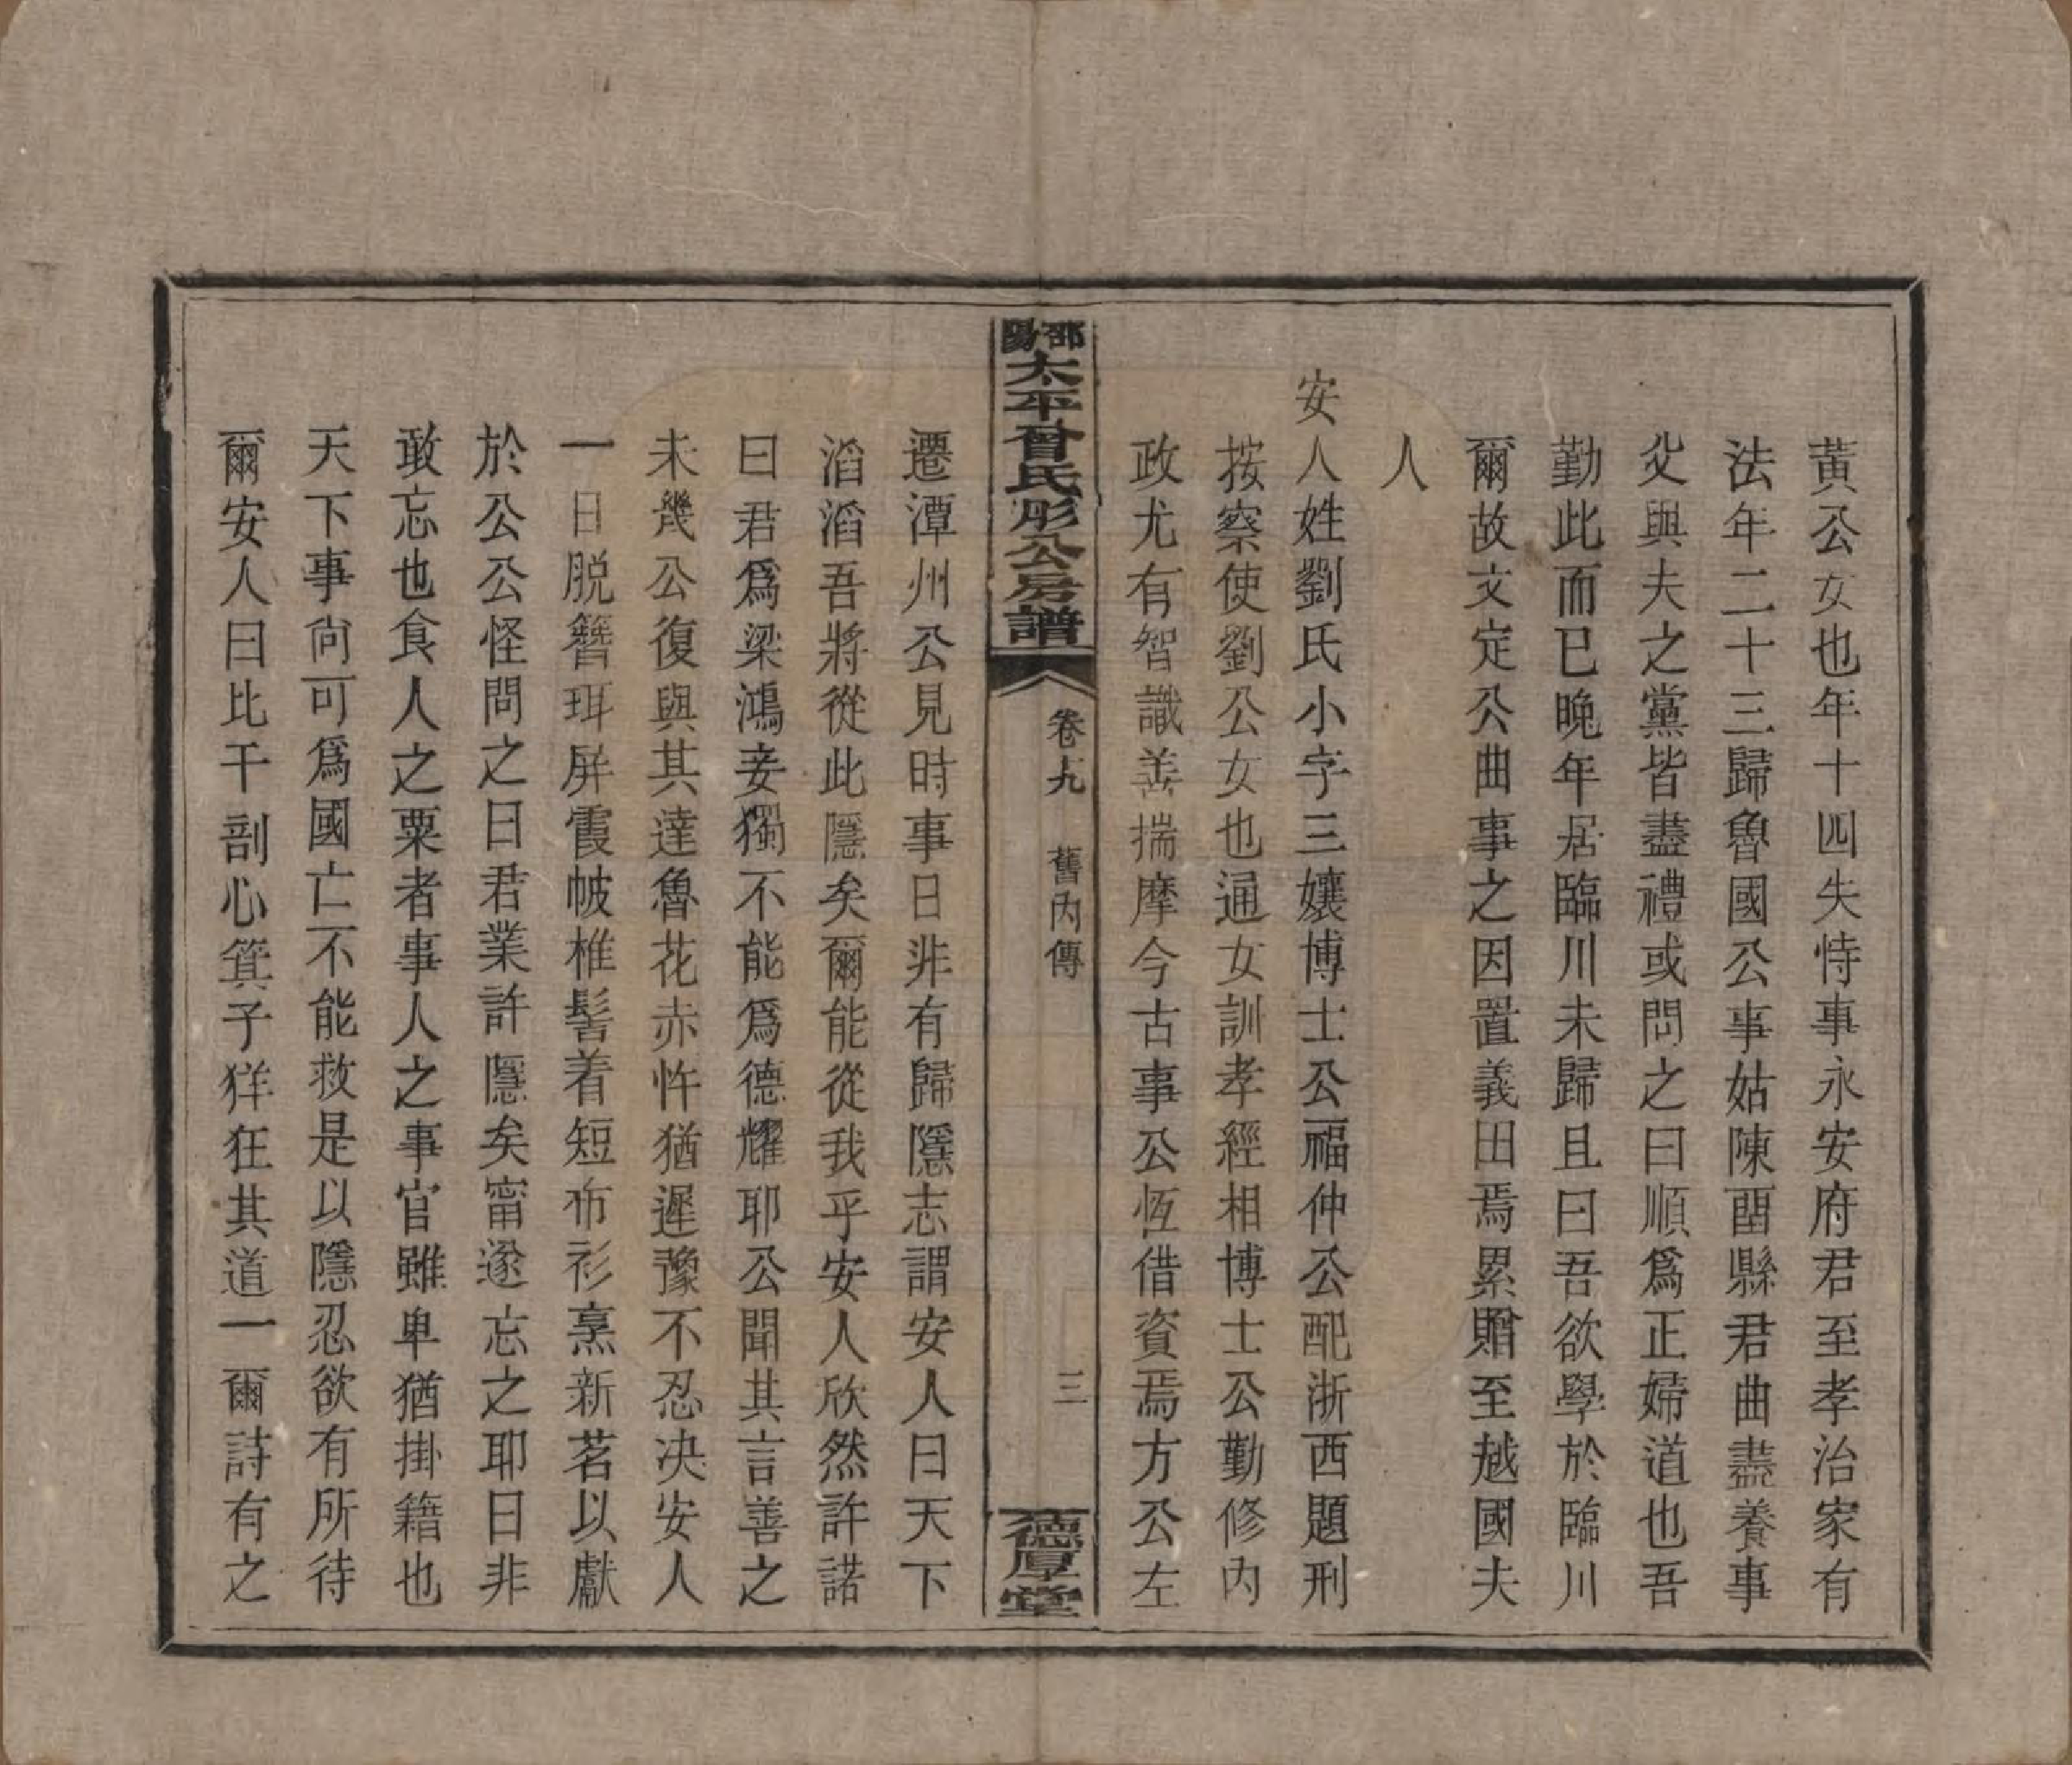 黃公女也年十四失恃事永安府君至孝治家有
法年二十三歸魯國公事姑陳酉縣君曲盡養事
父與夫之黨皆盡禮或問之曰順爲正婦道也吾
勤此而已晚年居臨川未歸且曰吾欲學於臨川
爾故文定公曲事之因置義田焉累贈至越國夫
人
安人姓劉氏小字三孃博士公福仲公配浙西題刑
按察使劉公女也通女訓孝經相博士公勤修內
政尤有智識善揣摩今古事公恆借資焉方公左
邵陽太平曾氏彤公房譜 卷九 舊內傳 三 德厚堂
遷潭州公見時事日非有歸隱志謂安人曰天下
滔滔吾將從此隱矣爾能從我乎安人欣然許諾
曰君爲梁鴻妾獨不能爲德耀耶公聞其言善之
未幾公復與其達魯花赤忤猶遲豫不忍决安人
一日脫簪珥屏霞帔椎髻着短布衫烹新茗以獻
於公公怪問之曰君業許隱矣甯遂忘之耶曰非
敢忘也食人之粟者事人之事官雖卑猶掛籍也
天下事尙可爲國亡不能救是以隱忍欲有所待
爾安人曰比干剖心箕子徉狂其道一爾詩有之